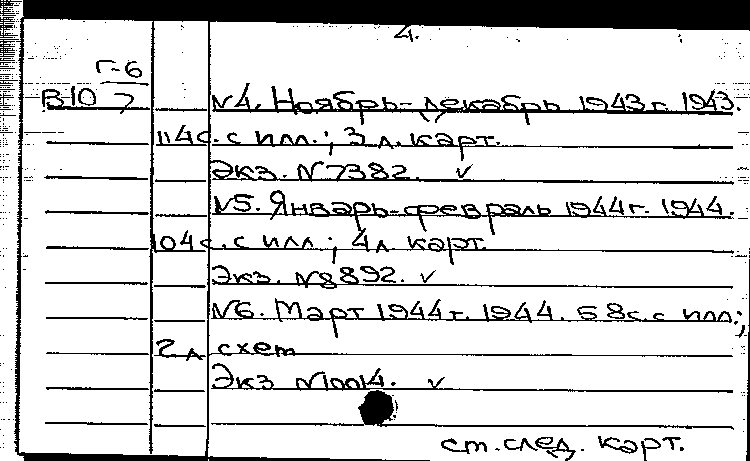 4.
Г-6
В10 7
№4. Ноябрь-декабрь 1943г. 1943.
114с. с илл.; 3 л. карт.
Экз. №7382. ✓
№5. Январь-февраль 1944г. 1944.
104с. с илл.; 4л. карт.
Экз. №8892. ✓
№6. Март 1944г. 1944. 58с. с илл.;
2 л схем
Экз №10014. ✓
см. след. карт.